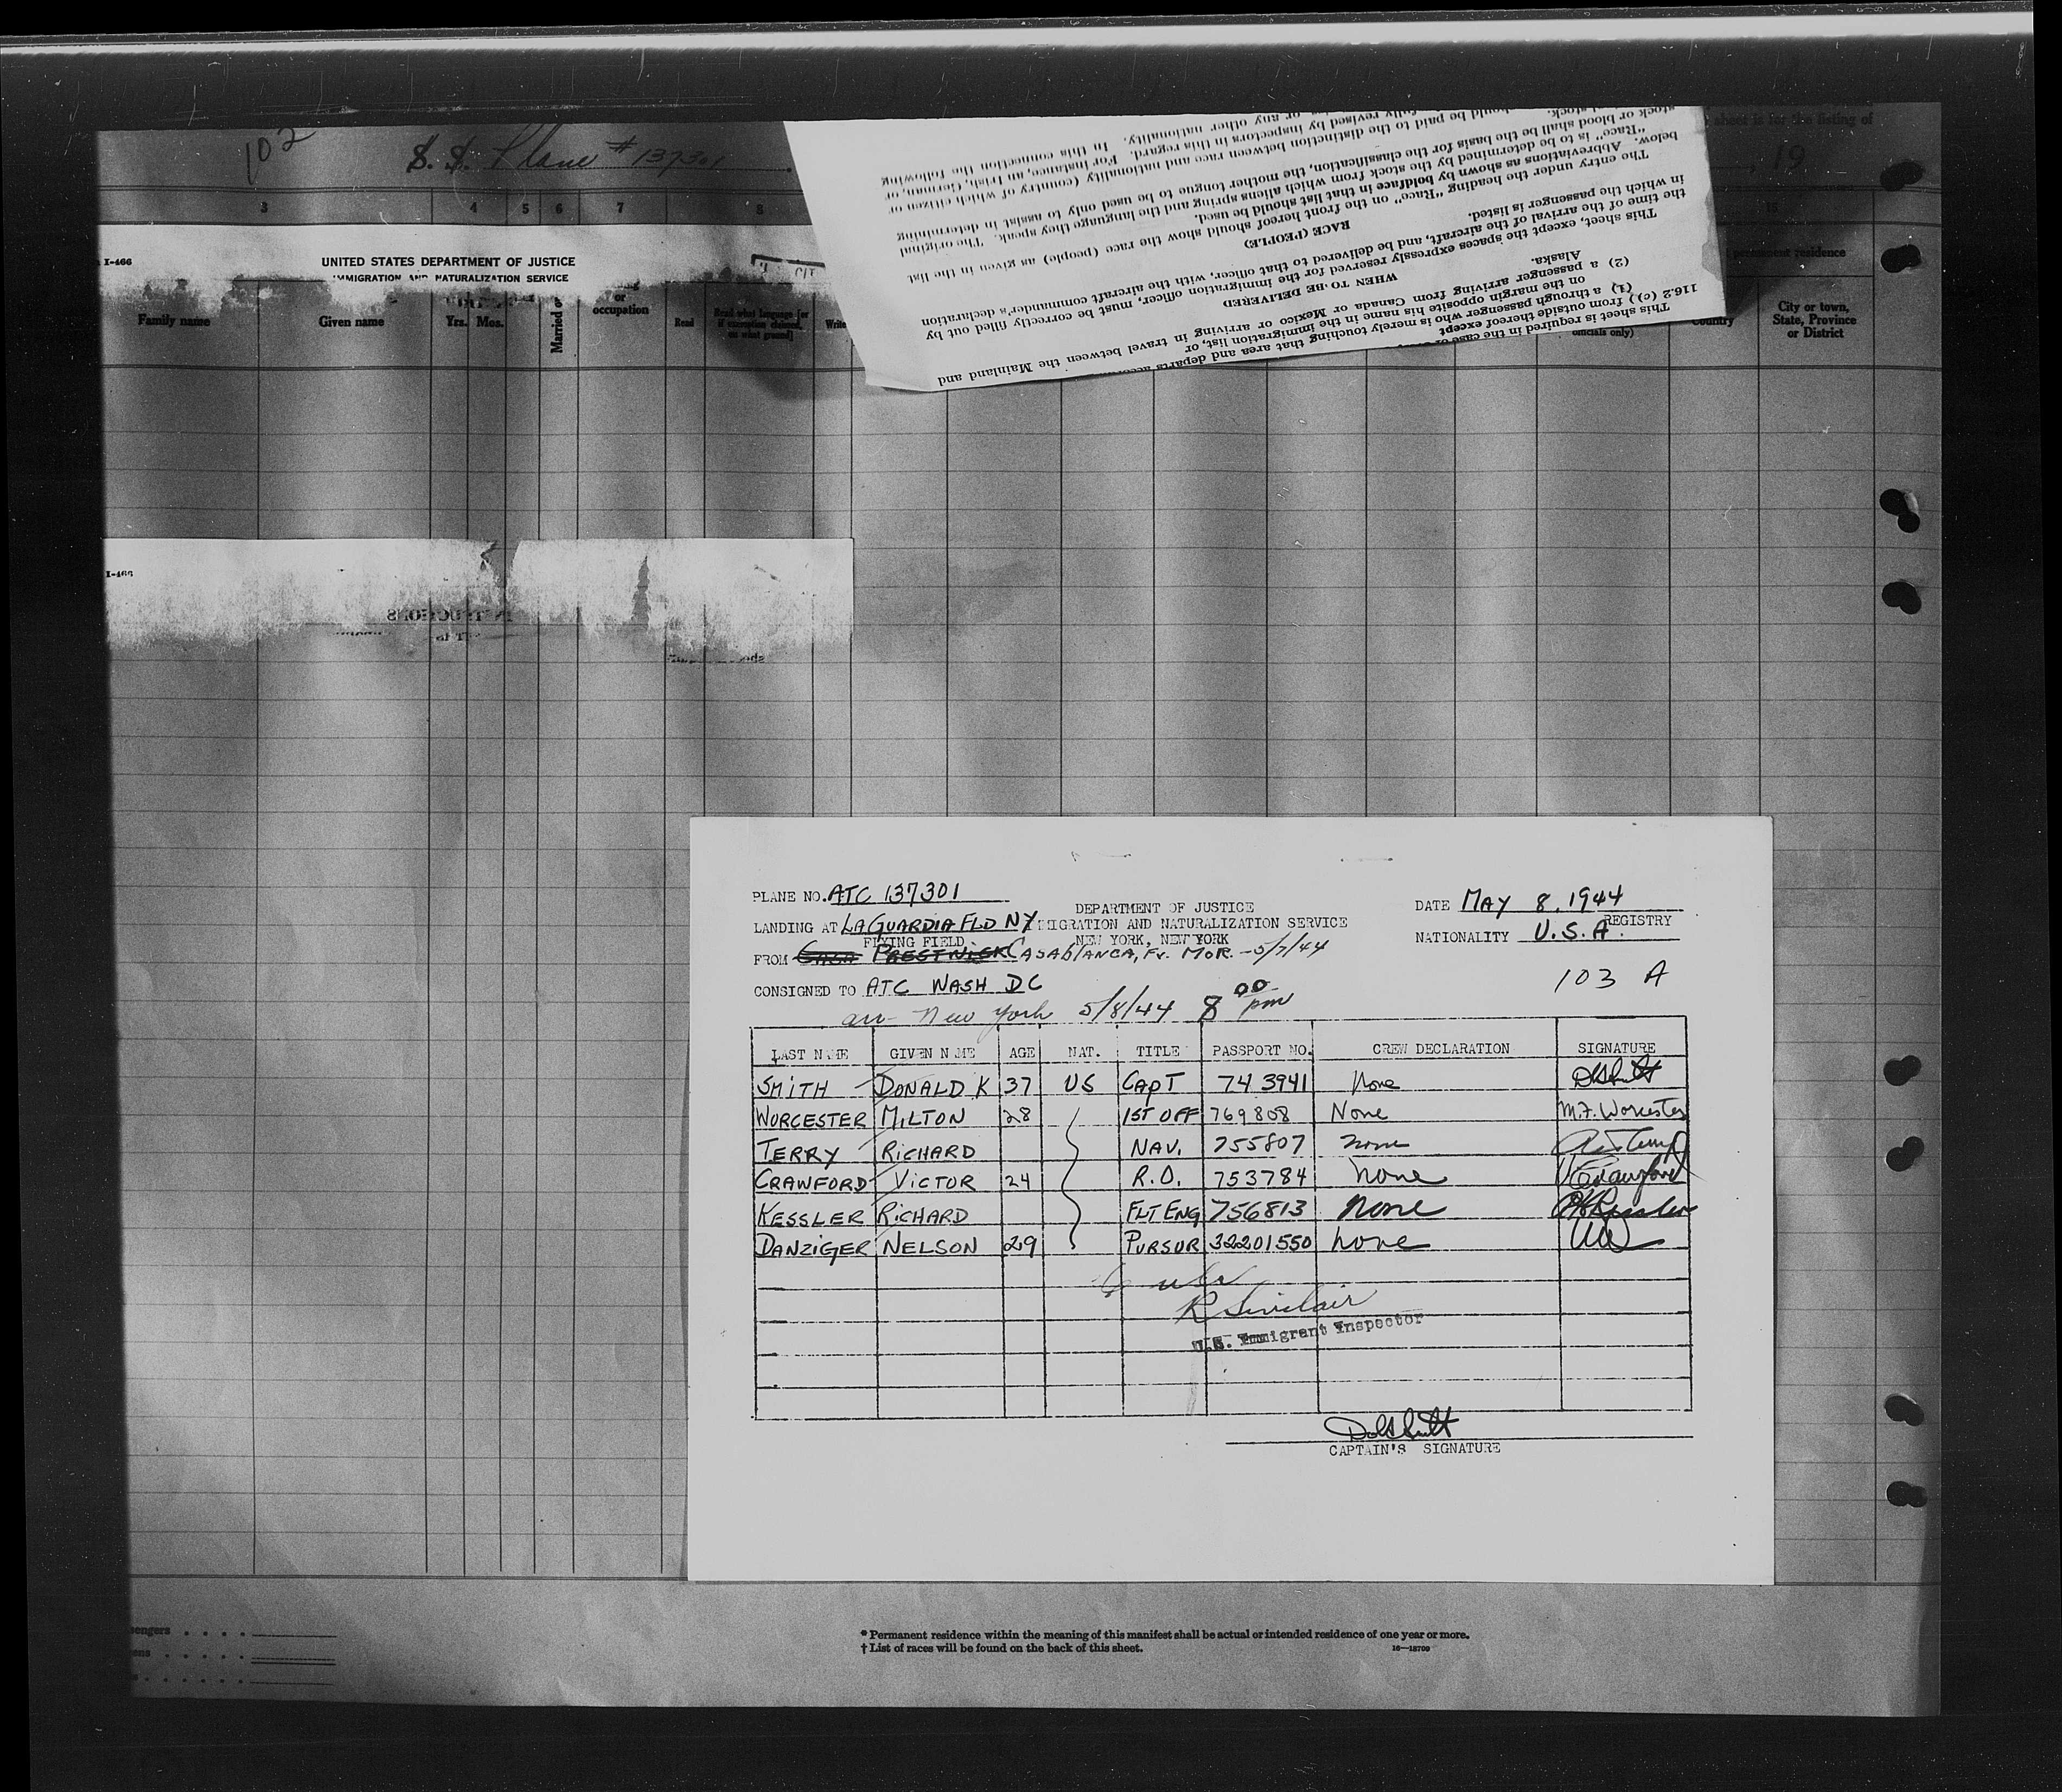 102
S. S. Plane # 137301
, 19
sheet is for the listing of
3 4 5 6 7 8
I-466
UNITED STATES DEPARTMENT OF JUSTICE
IMMIGRATION AND NATURALIZATION SERVICE
permanent residence
Family name Given name Yrs. Mos. Married or or occupation Read Read what language [or if exemption claimed, on what ground] Write officials only) Country City or town, State, Province or District
116.2 (c)) from outside thereof except
This sheet is required in the case of
(1) a through passenger who is merely touching that area and departs
on the margin opposite his name in the immigration list, or
(2) a passenger arriving from Canada or Mexico or arriving in travel between the Mainland and
Alaska.
WHEN TO BE DELIVERED
This sheet, except the spaces expressly reserved for the immigration officer, must be correctly filled out by
the time of the arrival of the aircraft, and be delivered to that officer, with the aircraft commander's declaration
in which the passenger is listed.
RACE (PEOPLE)
The entry under the heading "Race" on the front hereof should show the race (people) as given in the list
below. Abbreviations as shown by boldface in that list should be used.
"Race" is to be determined by the stock from which aliens spring and the language they speak. The original
stock or blood shall be the basis for the classification, the mother tongue to be used only to assist in determining
stock.
should be paid to the distinction between race and nationality (country of which citizen or
fully revised by inspectors in this regard. For instance, an Irish, German, or
or any other nationality. In this connection the following
I-466
INSTRUCTIONS
PLANE NO. ATC 137301
DEPARTMENT OF JUSTICE
DATE MAY 8, 1944
LANDING AT LAGUARDIA FLD NY
IMMIGRATION AND NATURALIZATION SERVICE
REGISTRY
FLYING FIELD
NEW YORK, NEW YORK
NATIONALITY U.S.A.
FROM CASA PRESTWICK CASABLANCA, Fr. MOR. - 5/7/44
103 A
CONSIGNED TO ATC WASH DC
arr - New York 5/8/44 8 00 pm
LAST NAME GIVEN NAME AGE NAT. TITLE PASSPORT NO. CREW DECLARATION SIGNATURE
SMITH DONALD K 37 US CAPT 743941 None
WORCESTER MILTON 28 1ST OFF 769808 None M.F. Worcester
TERRY RICHARD NAV. 755807 none
CRAWFORD VICTOR 24 R.O. 753784 none V Crawford
KESSLER RICHARD FLT ENG 756813 none R Kessler
DANZIGER NELSON 29 PURSUR 32201550 none
6 usc
R Sinclair
U.S. Immigrant Inspector
CAPTAIN'S SIGNATURE
* Permanent residence within the meaning of this manifest shall be actual or intended residence of one year or more.
† List of races will be found on the back of this sheet. 16—18709